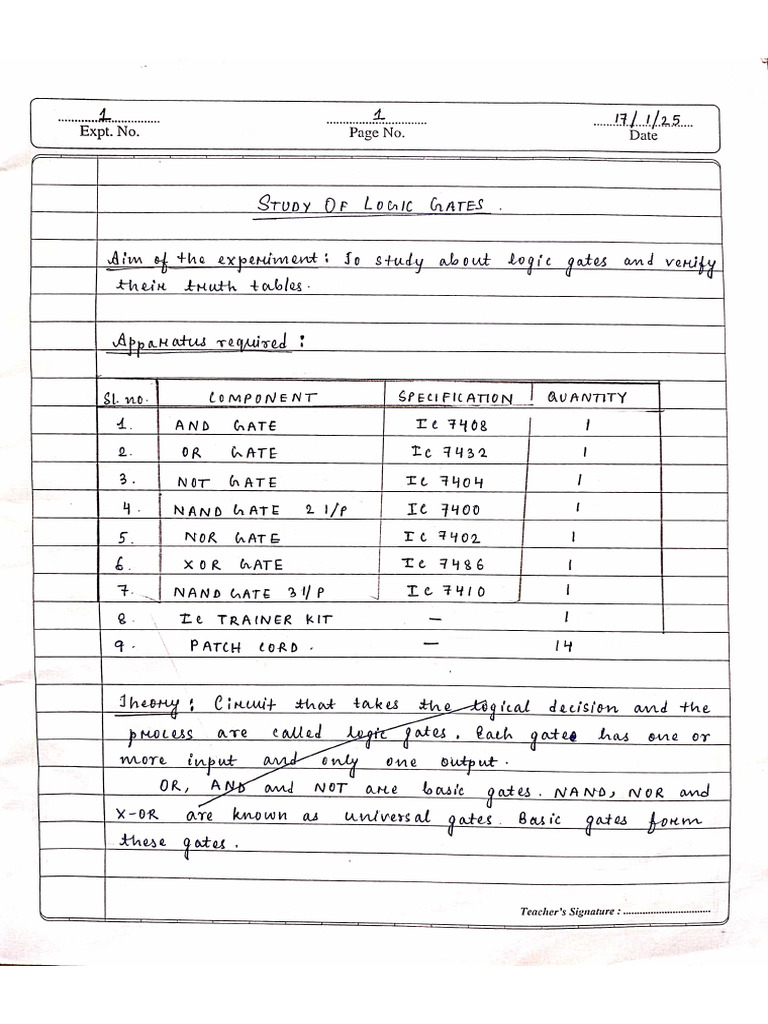 1
Expt. No.
1
Page No.
17/1/25
Date
STUDY OF LOGIC GATES.
Aim of the experiment: To study about logic gates and verify
their truth tables.
Apparatus required:
Sl. no. COMPONENT SPECIFICATION QUANTITY
1. AND GATE IC 7408 1
2. OR GATE IC 7432 1
3. NOT GATE IC 7404 1
4. NAND GATE 2 I/P IC 7400 1
5. NOR GATE IC 7402 1
6. XOR GATE IC 7486 1
7. NAND GATE 3 I/P IC 7410 1
8. IC TRAINER KIT — 1
9. PATCH CORD. — 14
Theory: Circuit that takes the logical decision and the
process are called logic gates. Each gate has one or
more input and only one output.
OR, AND and NOT are basic gates. NAND, NOR and
X-OR are known as universal gates. Basic gates form
these gates.
Teacher's Signature :